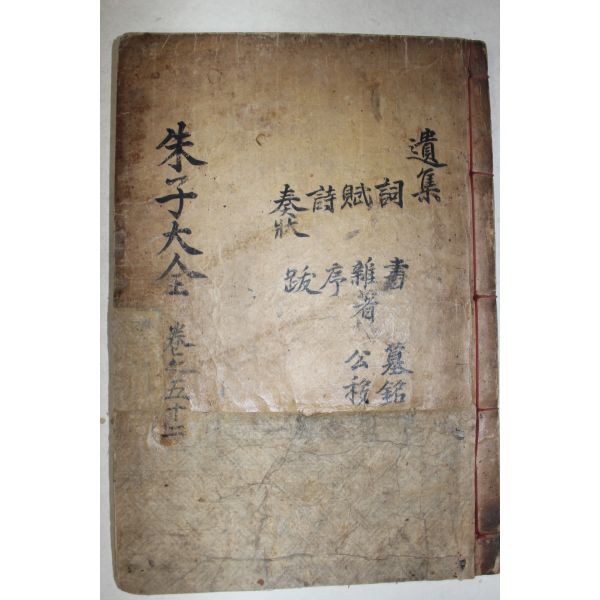 遺集
詞 書 墓銘
賦 雜著 公移
詩 序
奏狀 跋
朱子大全 卷之五十